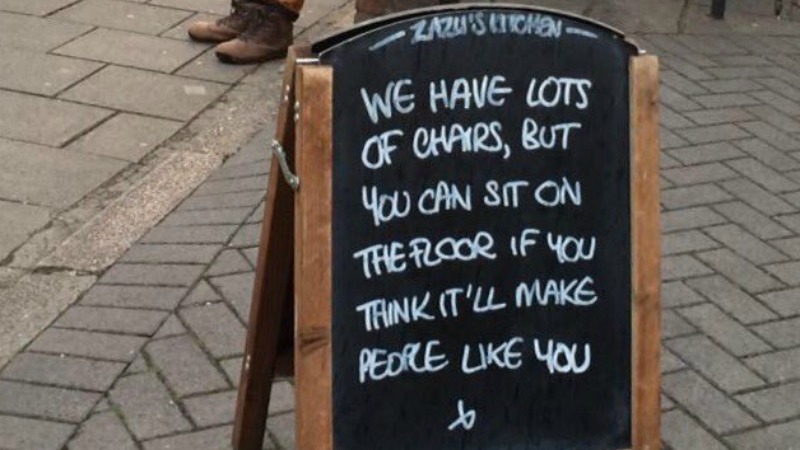 ZAZU'S KITCHEN
WE HAVE LOTS
OF CHAIRS, BUT
YOU CAN SIT ON
THE FLOOR IF YOU
THINK IT'LL MAKE
PEOPLE LIKE YOU